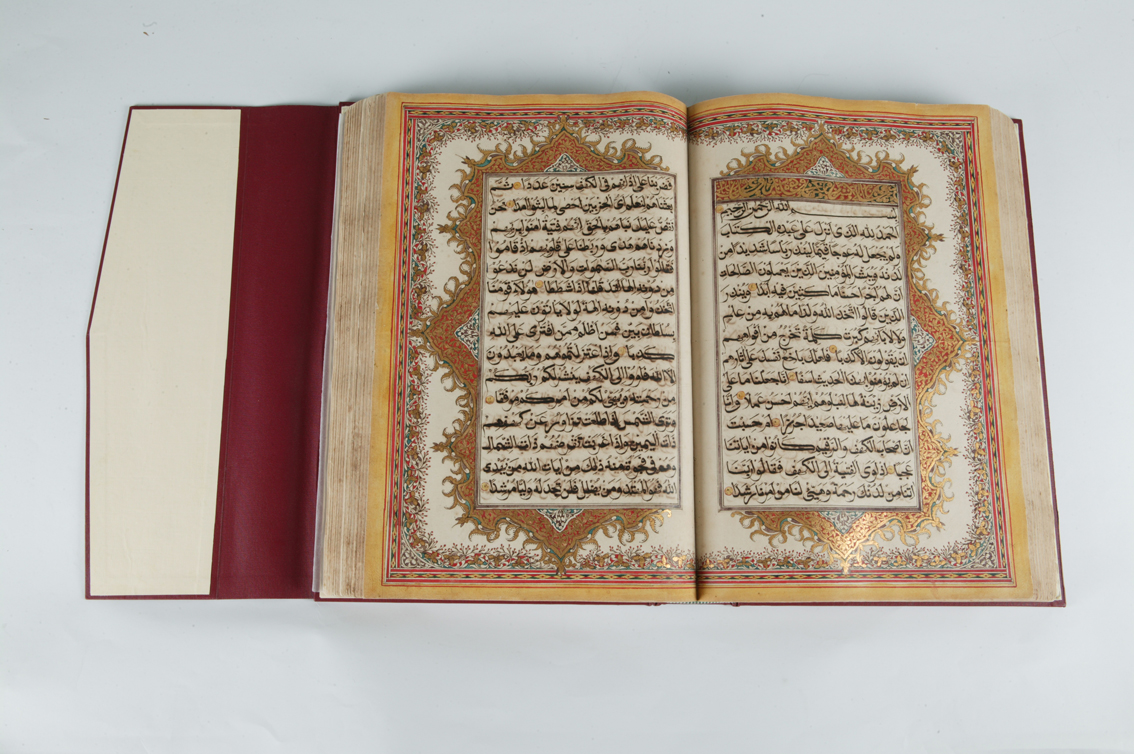 بسم الله الرحمن الرحيم
الحمد لله الذي انزل على عبده الكتاب
ولم يجعل له عوجا قيما لينذر باسا شديدا من
لدنه ويبشر المؤمنين الذين يعملون الصالحات
ان لهم اجرا حسنا ماكثين فيه ابدا وينذر
الذين قالوا اتخذ الله ولدا ما لهم به من علم
ولا لابائهم كبرت كلمة تخرج من افواههم
ان يقولون الا كذبا فلعلك باخع نفسك على اثارهم
ان لم يؤمنوا بهذا الحديث اسفا انا جعلنا ما على
الارض زينة لها لنبلوهم ايهم احسن عملا وانا
لجاعلون ما عليها صعيدا جرزا ام حسبت
ان اصحاب الكهف والرقيم كانوا من اياتنا
عجبا اذ اوى الفتية الى الكهف فقالوا ربنا
اتنا من لدنك رحمة وهيئ لنا من امرنا رشدا
فضربنا على اذانهم في الكهف سنين عددا ثم
بعثناهم لنعلم اي الحزبين احصى لما لبثوا امدا نحن
نقص عليك نباهم بالحق انهم فتية امنوا بربهم
وزدناهم هدى وربطنا على قلوبهم اذ قاموا
فقالوا ربنا رب السموات والارض لن ندعوا
من دونه الها لقد قلنا اذا شططا هؤلاء قومنا
اتخذوا من دونه الهة لولا ياتون عليهم
بسلطان بين فمن اظلم ممن افترى على الله
كذبا واذ اعتزلتموهم وما يعبدون
الا الله فاووا الى الكهف ينشر لكم ربكم
من رحمته ويهيئ لكم من امركم مرفقا
وترى الشمس اذا طلعت تزاور عن كهفهم
ذات اليمين واذا غربت تقرضهم ذات الشمال
وهم في فجوة منه ذلك من ايات الله من يهد
الله فهو المهتد ومن يضلل فلن تجد له وليا مرشدا